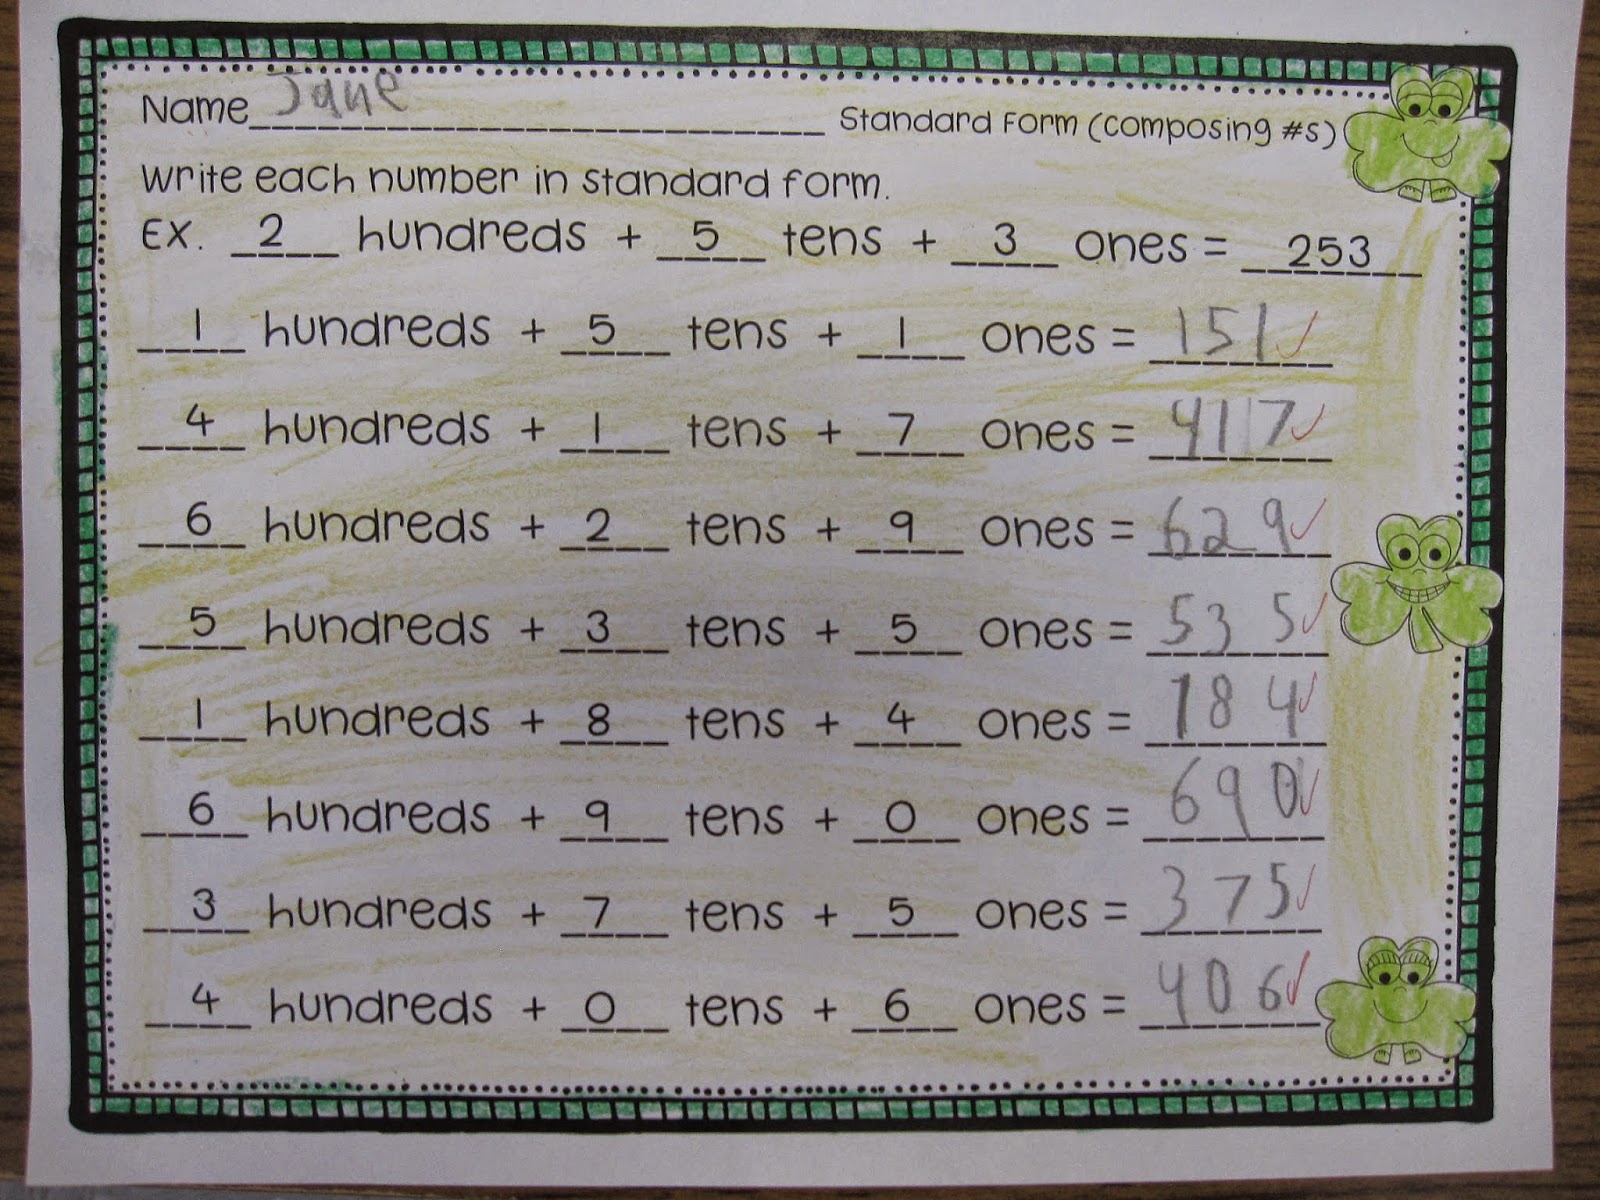 Name Jane Standard Form (composing #s)
Write each number in standard form.
Ex. 2 hundreds + 5 tens + 3 ones = 253
1 hundreds + 5 tens + 1 ones = 151 ✓
4 hundreds + 1 tens + 7 ones = 417 ✓
6 hundreds + 2 tens + 9 ones = 629 ✓
5 hundreds + 3 tens + 5 ones = 535 ✓
1 hundreds + 8 tens + 4 ones = 184 ✓
6 hundreds + 9 tens + 0 ones = 690 ✓
3 hundreds + 7 tens + 5 ones = 375 ✓
4 hundreds + 0 tens + 6 ones = 406 ✓